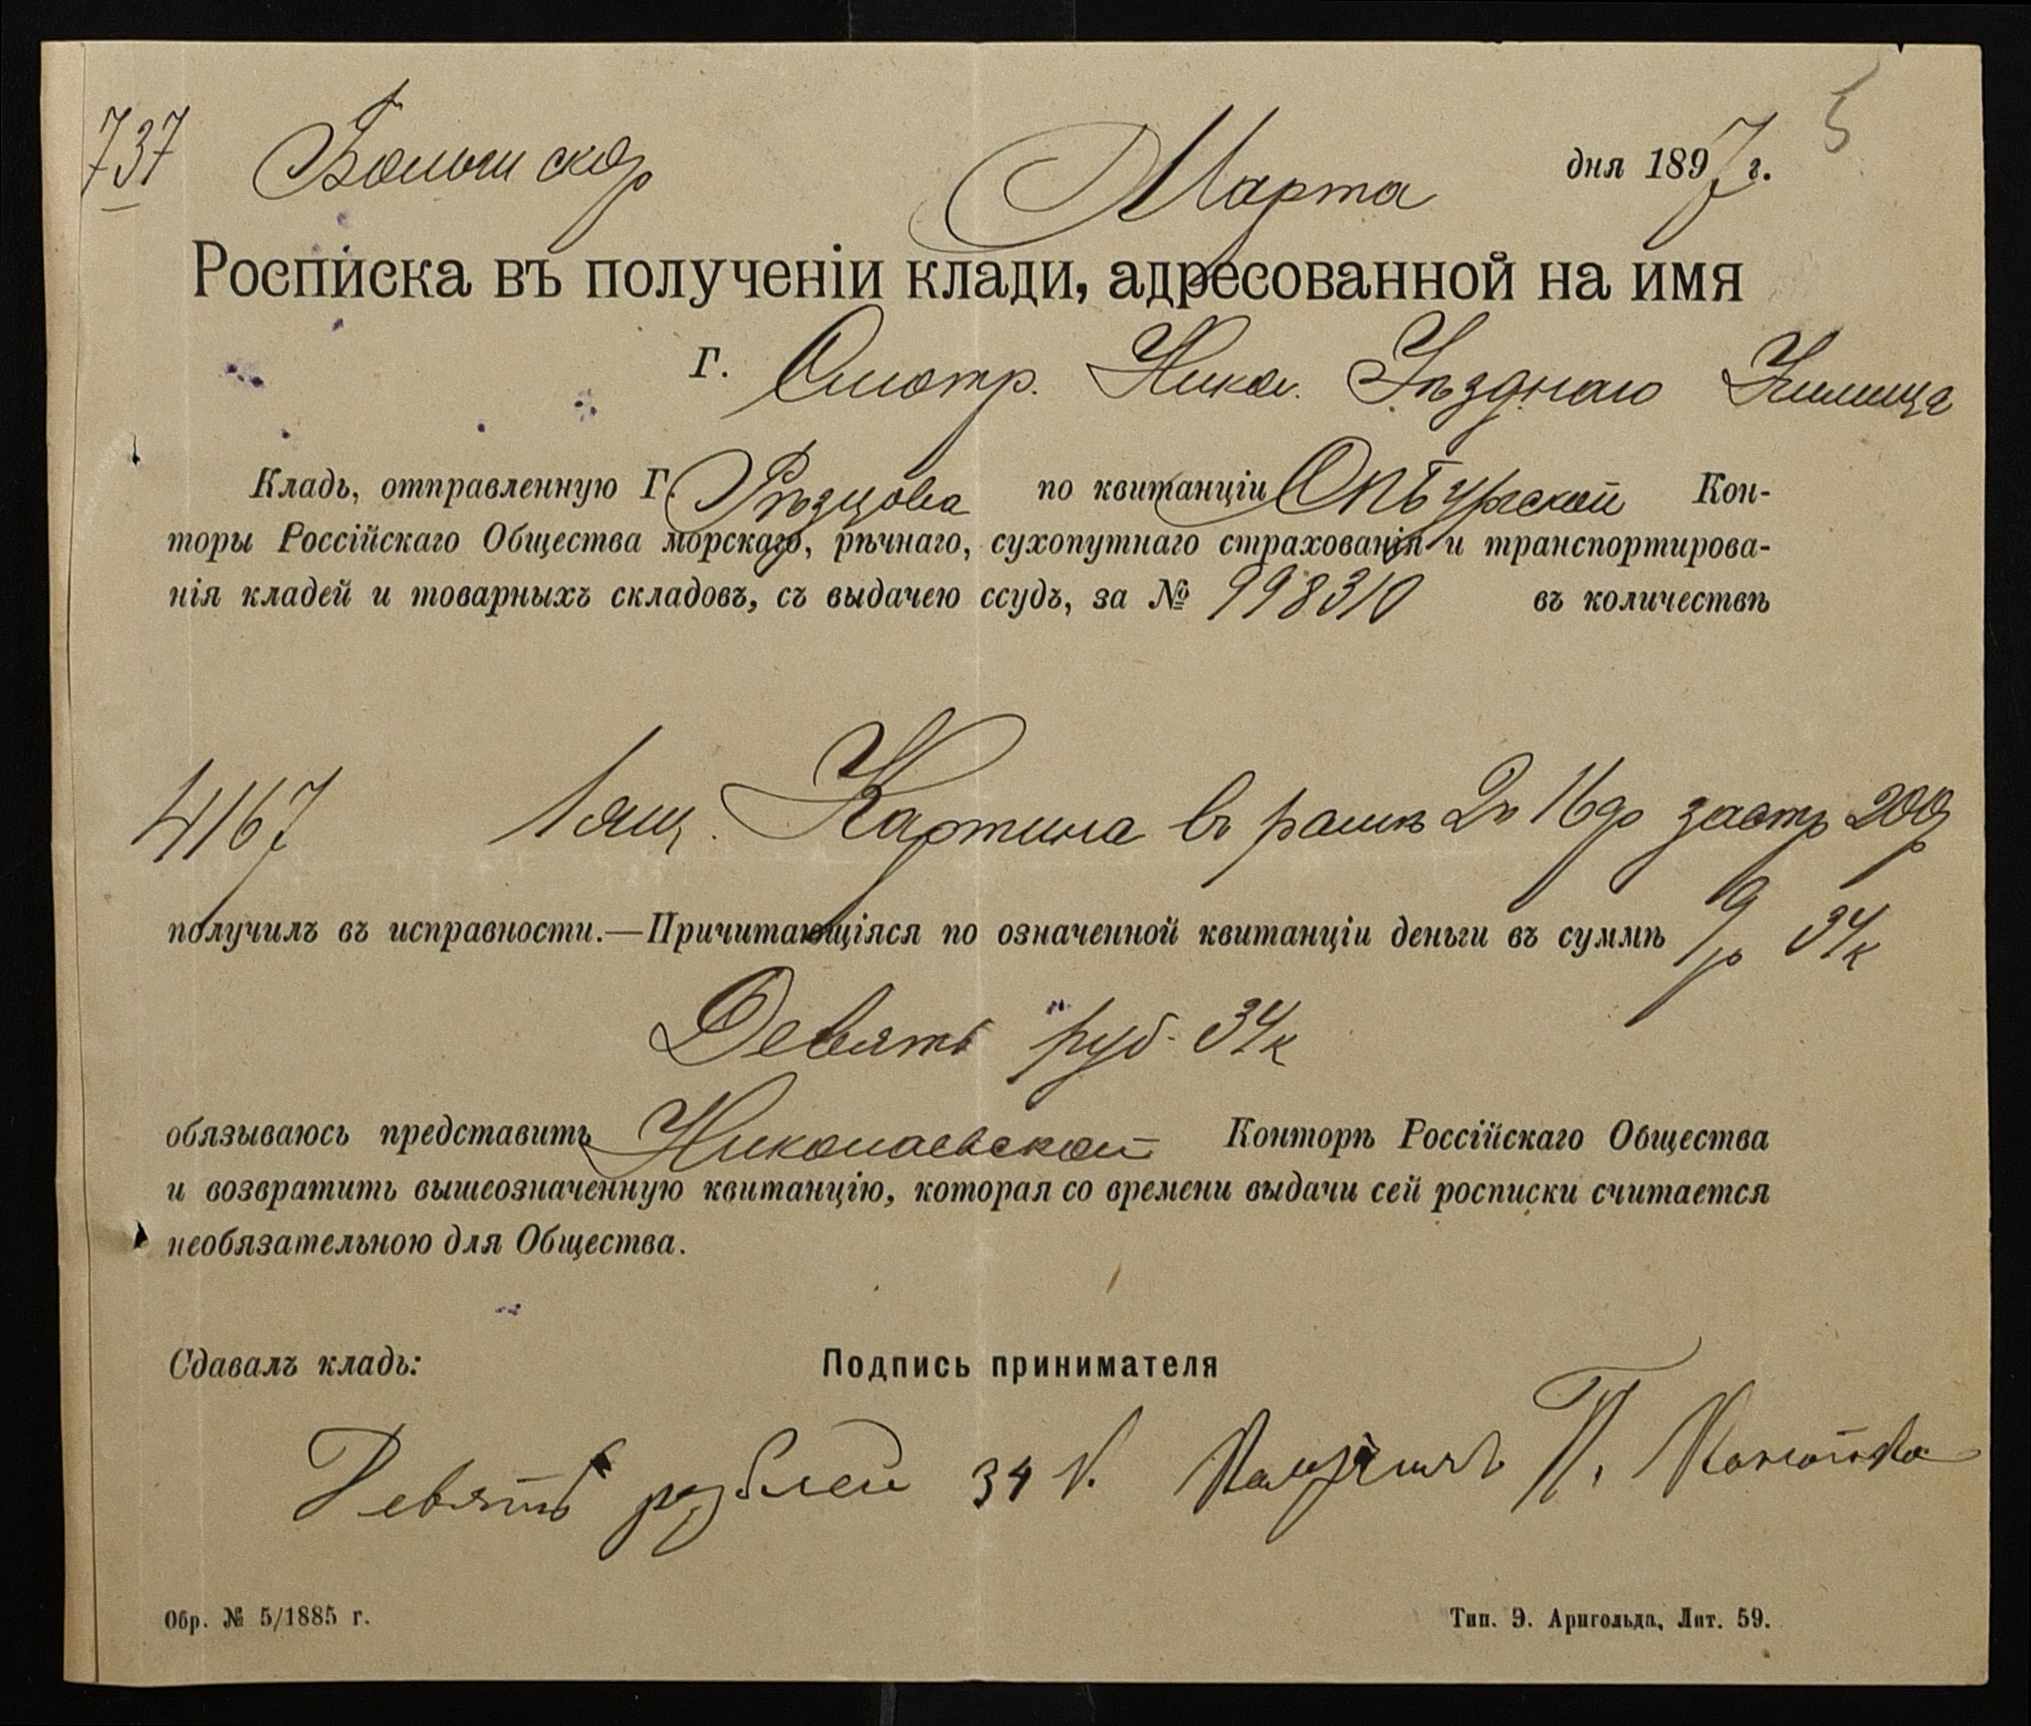 737 Больш скор Марта дня 1897 г. 5
Росписка въ полученіи клади, адресованной на имя
г. Смотр. Никол. Уѣзднаго Училища
Кладь, отправленную Г. Рѣзцова по квитанціи СПбургской Кон-
торы Россійскаго Общества морскаго, рѣчнаго, сухопутнаго страхованія и транспортирова-
нія кладей и товарныхъ складовъ, съ выдачею ссудъ, за № 998310 въ количествѣ
4167 1 ящ. Картина въ рамѣ 2п 16ф застр 200р
получилъ въ исправности.—Причитающіяся по означенной квитанціи деньги въ суммѣ 9р 34к
Девять руб. 34к
обязываюсь представить Николаевской Конторѣ Россійскаго Общества
и возвратить вышеозначенную квитанцію, которая со времени выдачи сей росписки считается
необязательною для Общества.
Сдавалъ кладь: Подпись принимателя
Девять рублей 34 к. П.
Обр. № 5/1885 г. Тип. Э. Арнгольда, Лит. 59.